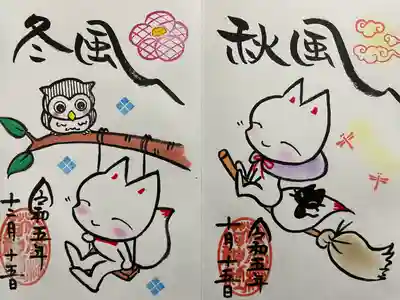 冬風
令和五年
十二月十五日
秋風
令和五年
十月十五日